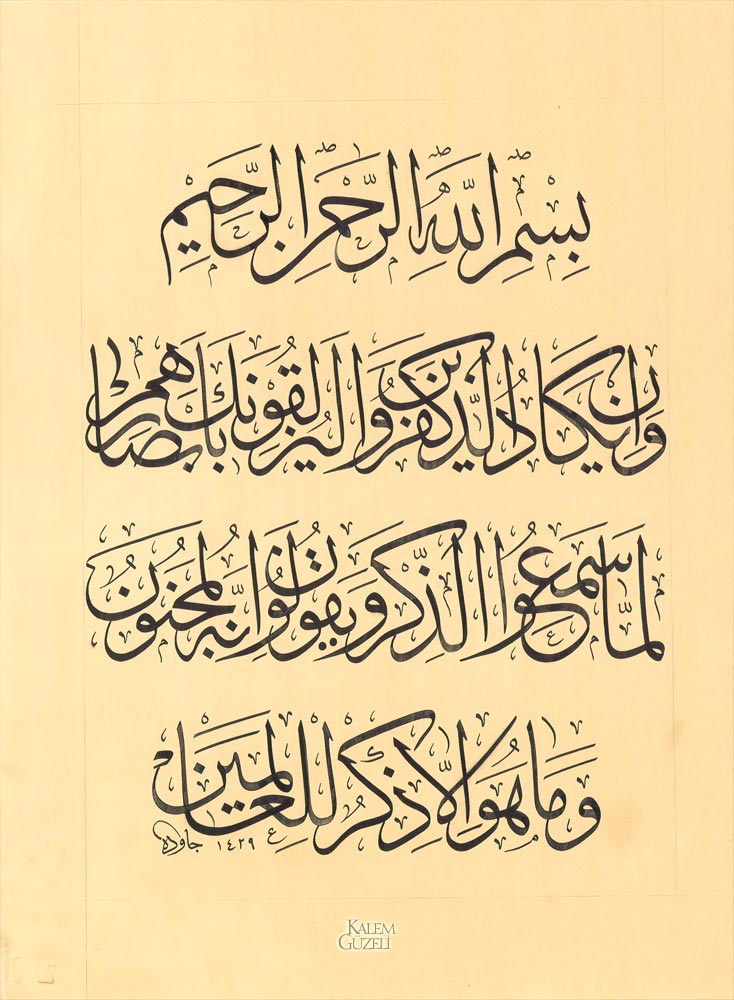 بِسْمِ اللهِ الرَّحْمٰنِ الرَّحِيمِ
وَإِنْ يَكَادُ الَّذِينَ كَفَرُوا لَيُزْلِقُونَكَ بِأَبْصَارِهِمْ
لَمَّا سَمِعُوا الذِّكْرَ وَيَقُولُونَ إِنَّهُ لَمَجْنُونٌ
وَمَا هُوَ إِلَّا ذِكْرٌ لِلْعَالَمِينَ
جاويد ١٤٢٩
KALEM
GÜZELİ